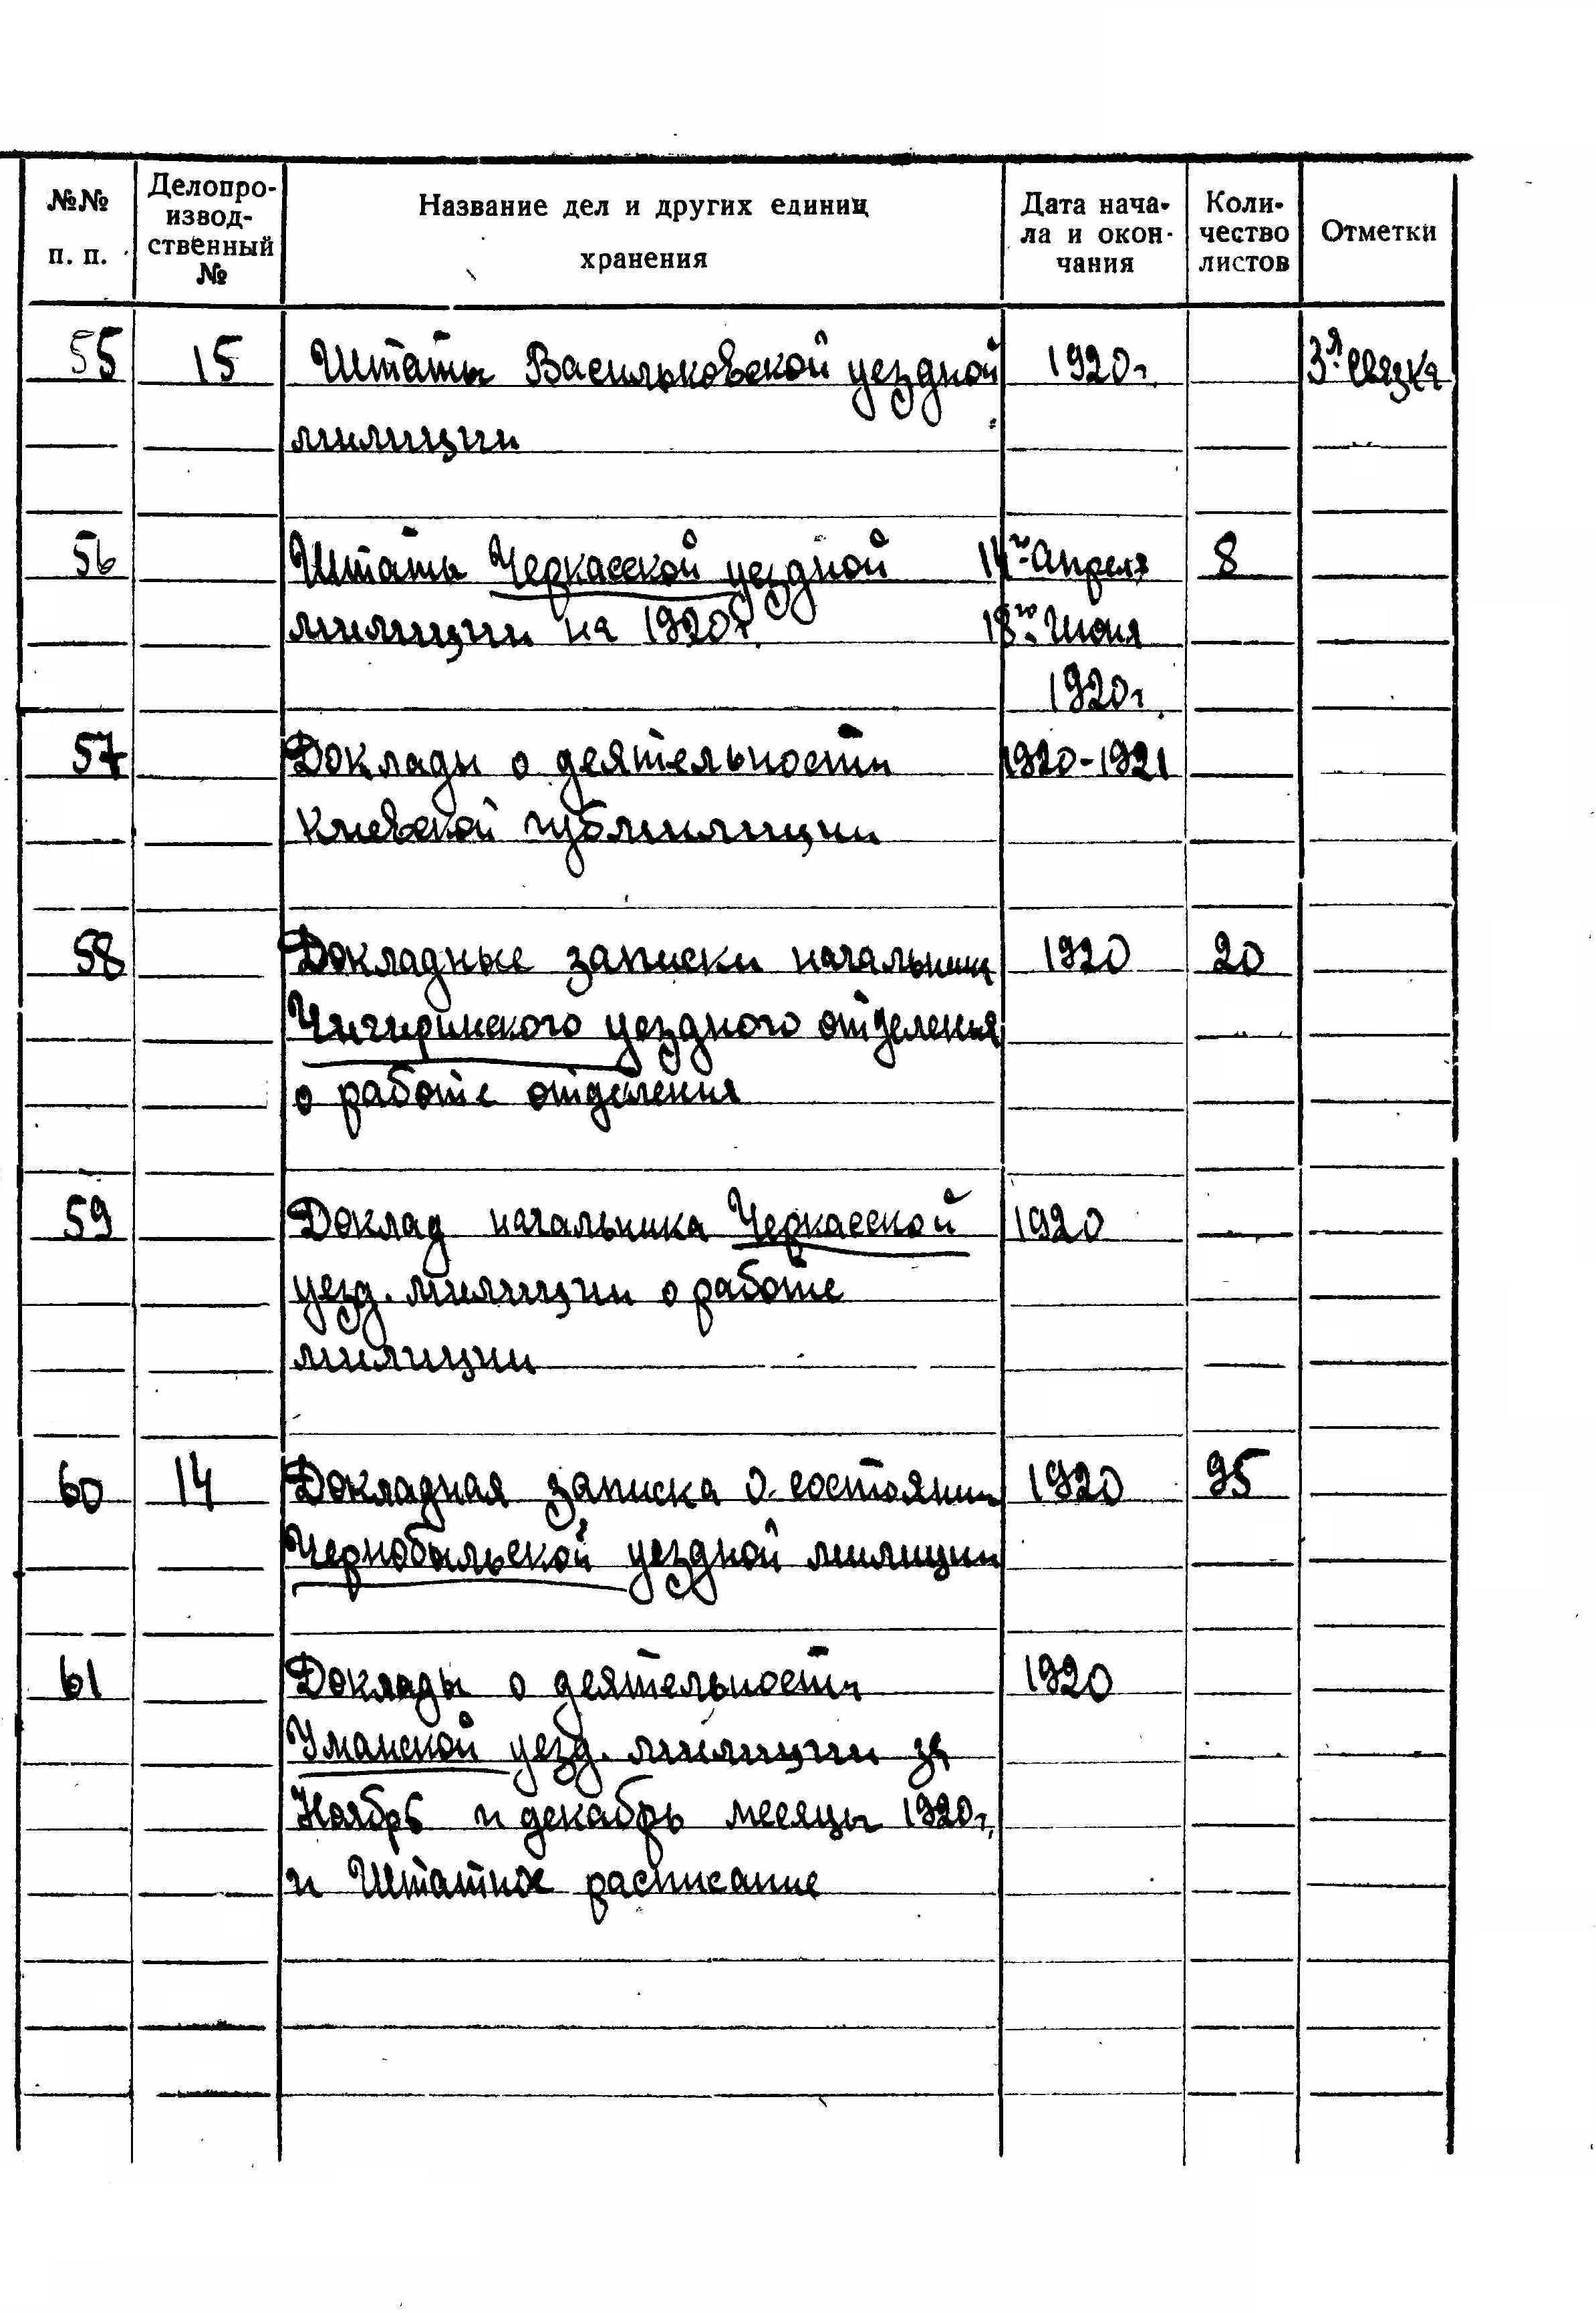 №№ п. п.
Делопро-
извод-
ственный
№
Название дел и других единиц
хранения
Дата нача-
ла и окон-
чания
Коли-
чество
листов
Отметки
55 15 Штаты Васильковской уездной 1920г. 3я связка
милиции
56 Штаты Черкасской уездной 14го Апреля 8
милиции на 1920г. 18го Июня
1920г.
57 Доклады о деятельности 1920-1921
Киевской губмилиции
58 Докладные записки начальник 1920 20
Чигиринского уездного отделения
о работе отделения
59 Доклад начальника Черкасской 1920
уезд. милиции о работе
милиции
60 14 Докладная записка о состоянии 1920 95
Чернобыльской уездной милиции
61 Доклады о деятельности 1920
Уманской уезд. милиции за
Ноябрь и декабрь месяцы 1920г.
и Штатное расписание